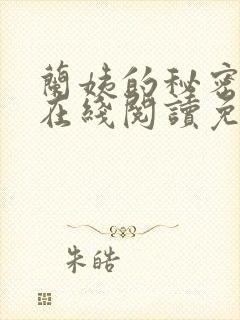 蘭姨的秘密
在綫閱讀免
朱皓